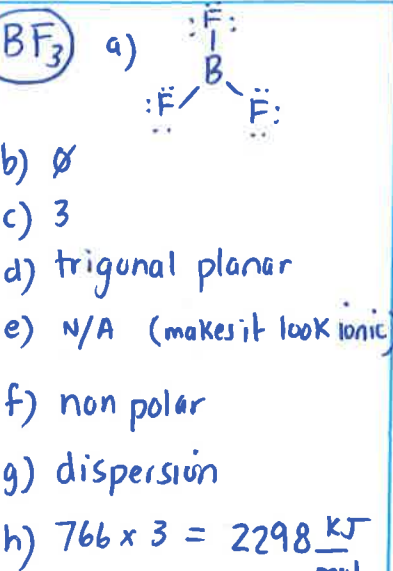 BF₃ a)
:F̈:
B
:F̈ F̈:
b) ∅
c) 3
d) trigonal planar
e) N/A (makes it look ionic)
f) non polar
g) dispersion
h) 766 x 3 = 2298 KJ